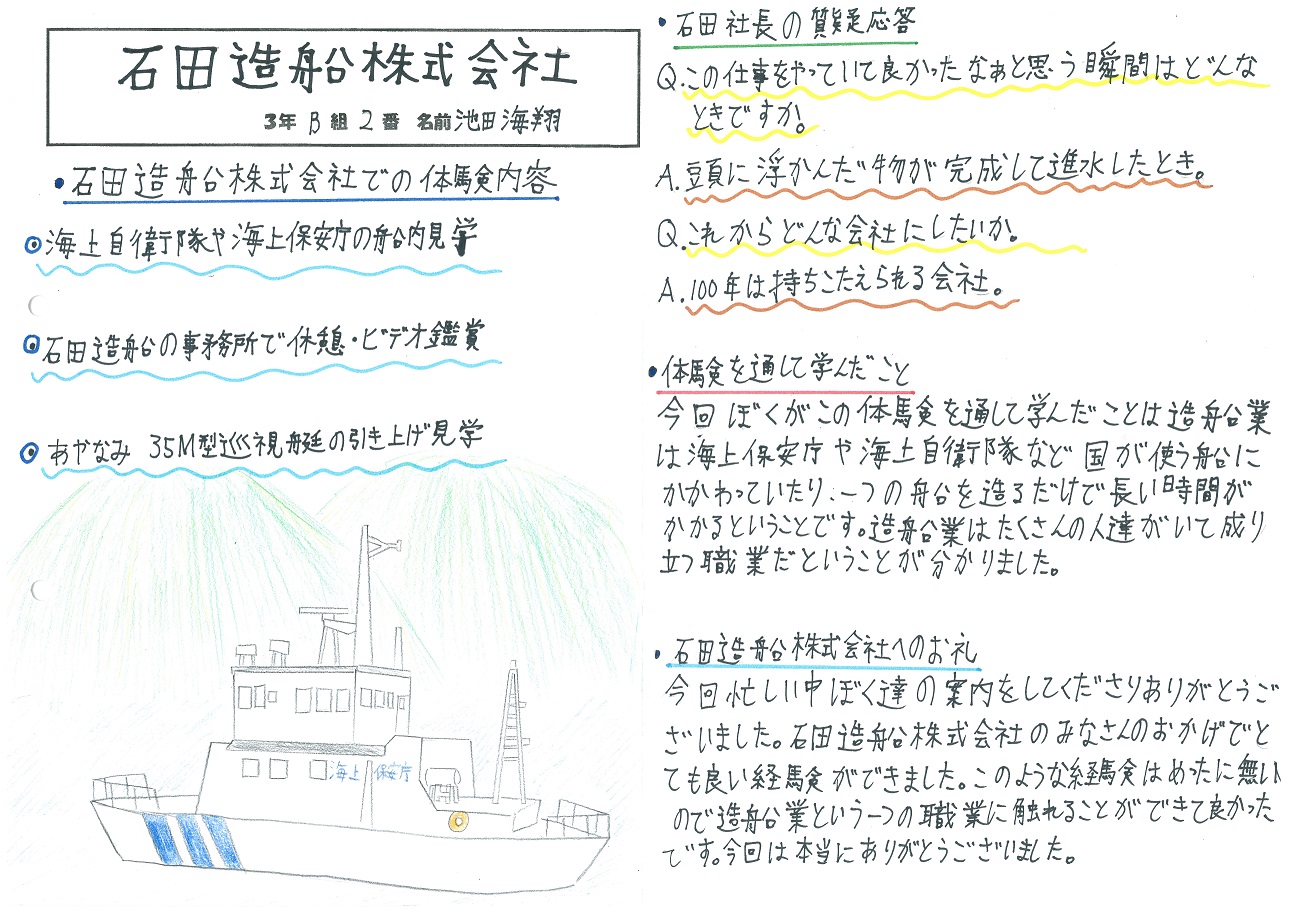 石田造船株式会社
3年 B 組 2 番 名前 池田海翔
・石田造船株式会社での体験内容
⦿海上自衛隊や海上保安庁の船内見学
⦿石田造船の事務所で休憩・ビデオ鑑賞
⦿あやなみ 35M型巡視艇の引き上げ見学
海上保安庁
・石田社長の質疑応答
Q.この仕事をやっていて良かったなぁと思う瞬間はどんな
ときですか。
A.頭に浮かんだ物が完成して進水したとき。
Q.これからどんな会社にしたいか。
A.100年は持ちこたえられる会社。
・体験を通して学んだこと
今回ぼくがこの体験を通して学んだことは造船業
は海上保安庁や海上自衛隊など国が使う船に
かかわっていたり、一つの船を造るだけで長い時間が
かかるということです。造船業はたくさんの人達がいて成り
立つ職業だということが分かりました。
・石田造船株式会社へのお礼
今回忙しい中ぼく達の案内をしてくださりありがとうご
ざいました。石田造船株式会社のみなさんのおかげでと
ても良い経験ができました。このような経験はめったに無い
ので造船業という一つの職業に触れることができて良かった
です。今回は本当にありがとうございました。